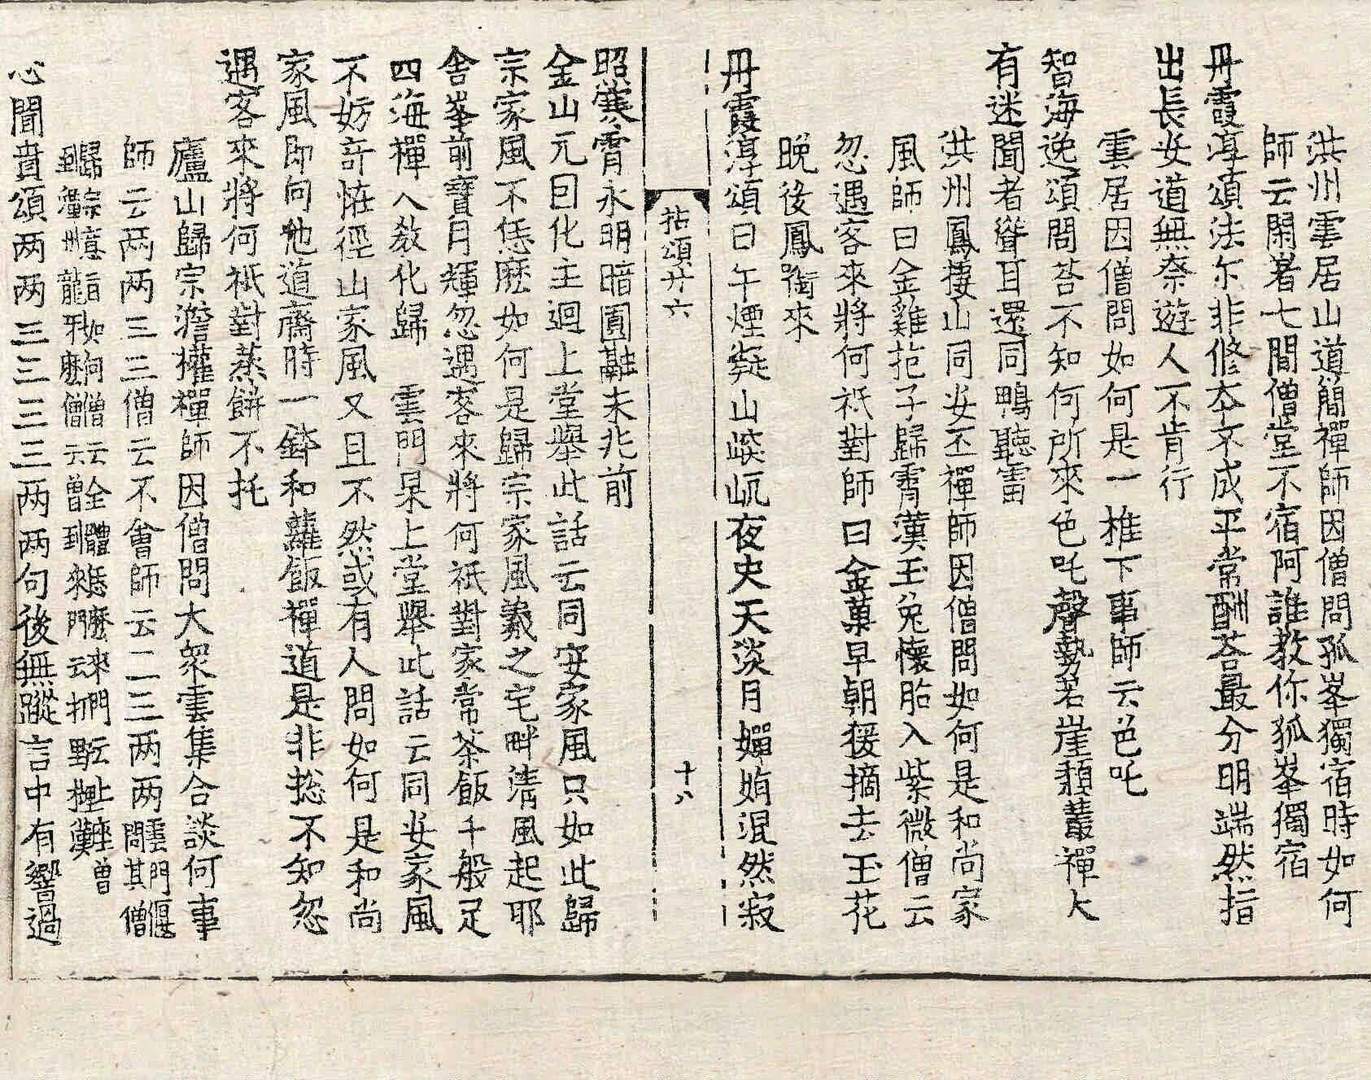 洪州雲居山道簡禪師因僧問孤峯獨宿時如何
師云閑著七間僧堂不宿阿誰教你孤峯獨宿
丹霞淳頌法尒非修夲不成平常酬荅最分明端然指
出長安道無奈遊人不肯行
雲居因僧問如何是一推下事師云邑吒
智海逸頌問荅不知何所來色吒聲勢若崖頹叢禪大
有迷聞者聳耳還同鴨聽雷
洪州鳳棲山同安丕禪師因僧問如何是和尚家
風師曰金雞抱子歸霄漢玉兔懷胎入紫微僧云
忽遇客來將何祇對師曰金菓早朝猨摘去玉花
晚後鳳銜來
丹霞淳頌曰午煙凝山巘屼夜史天淡月嬋娟混然寂
拈頌廿六
十八
照寒霄永明暗圓融未兆前
金山元因化主迴上堂舉此話云同安家風只如此歸
宗家風不恁麽如何是歸宗家風羲之宅畔清風起耶
舍峯前寶月輝忽遇客來將何祇對家常茶飯千般足
四海禪人教化歸 雲門杲上堂舉此話云同安家風
不妨竒恠徑山家風又且不然或有人問如何是和尚
家風即向他道齋時一鉢和蘿飯禪道是非揔不知忽
遇客來將何祇對蒸餅不托
廬山歸宗澹權禪師因僧問大衆雲集合談何事
師云两两三三僧云不會師云三三两两雲門偃問其僧
歸宗意旨如何僧云全體恁麽來門云上座曽到潭州龍牙麽僧云曽到來門云打野榸漢
心聞賁頌两两三三三三两两句後無蹤言中有響過